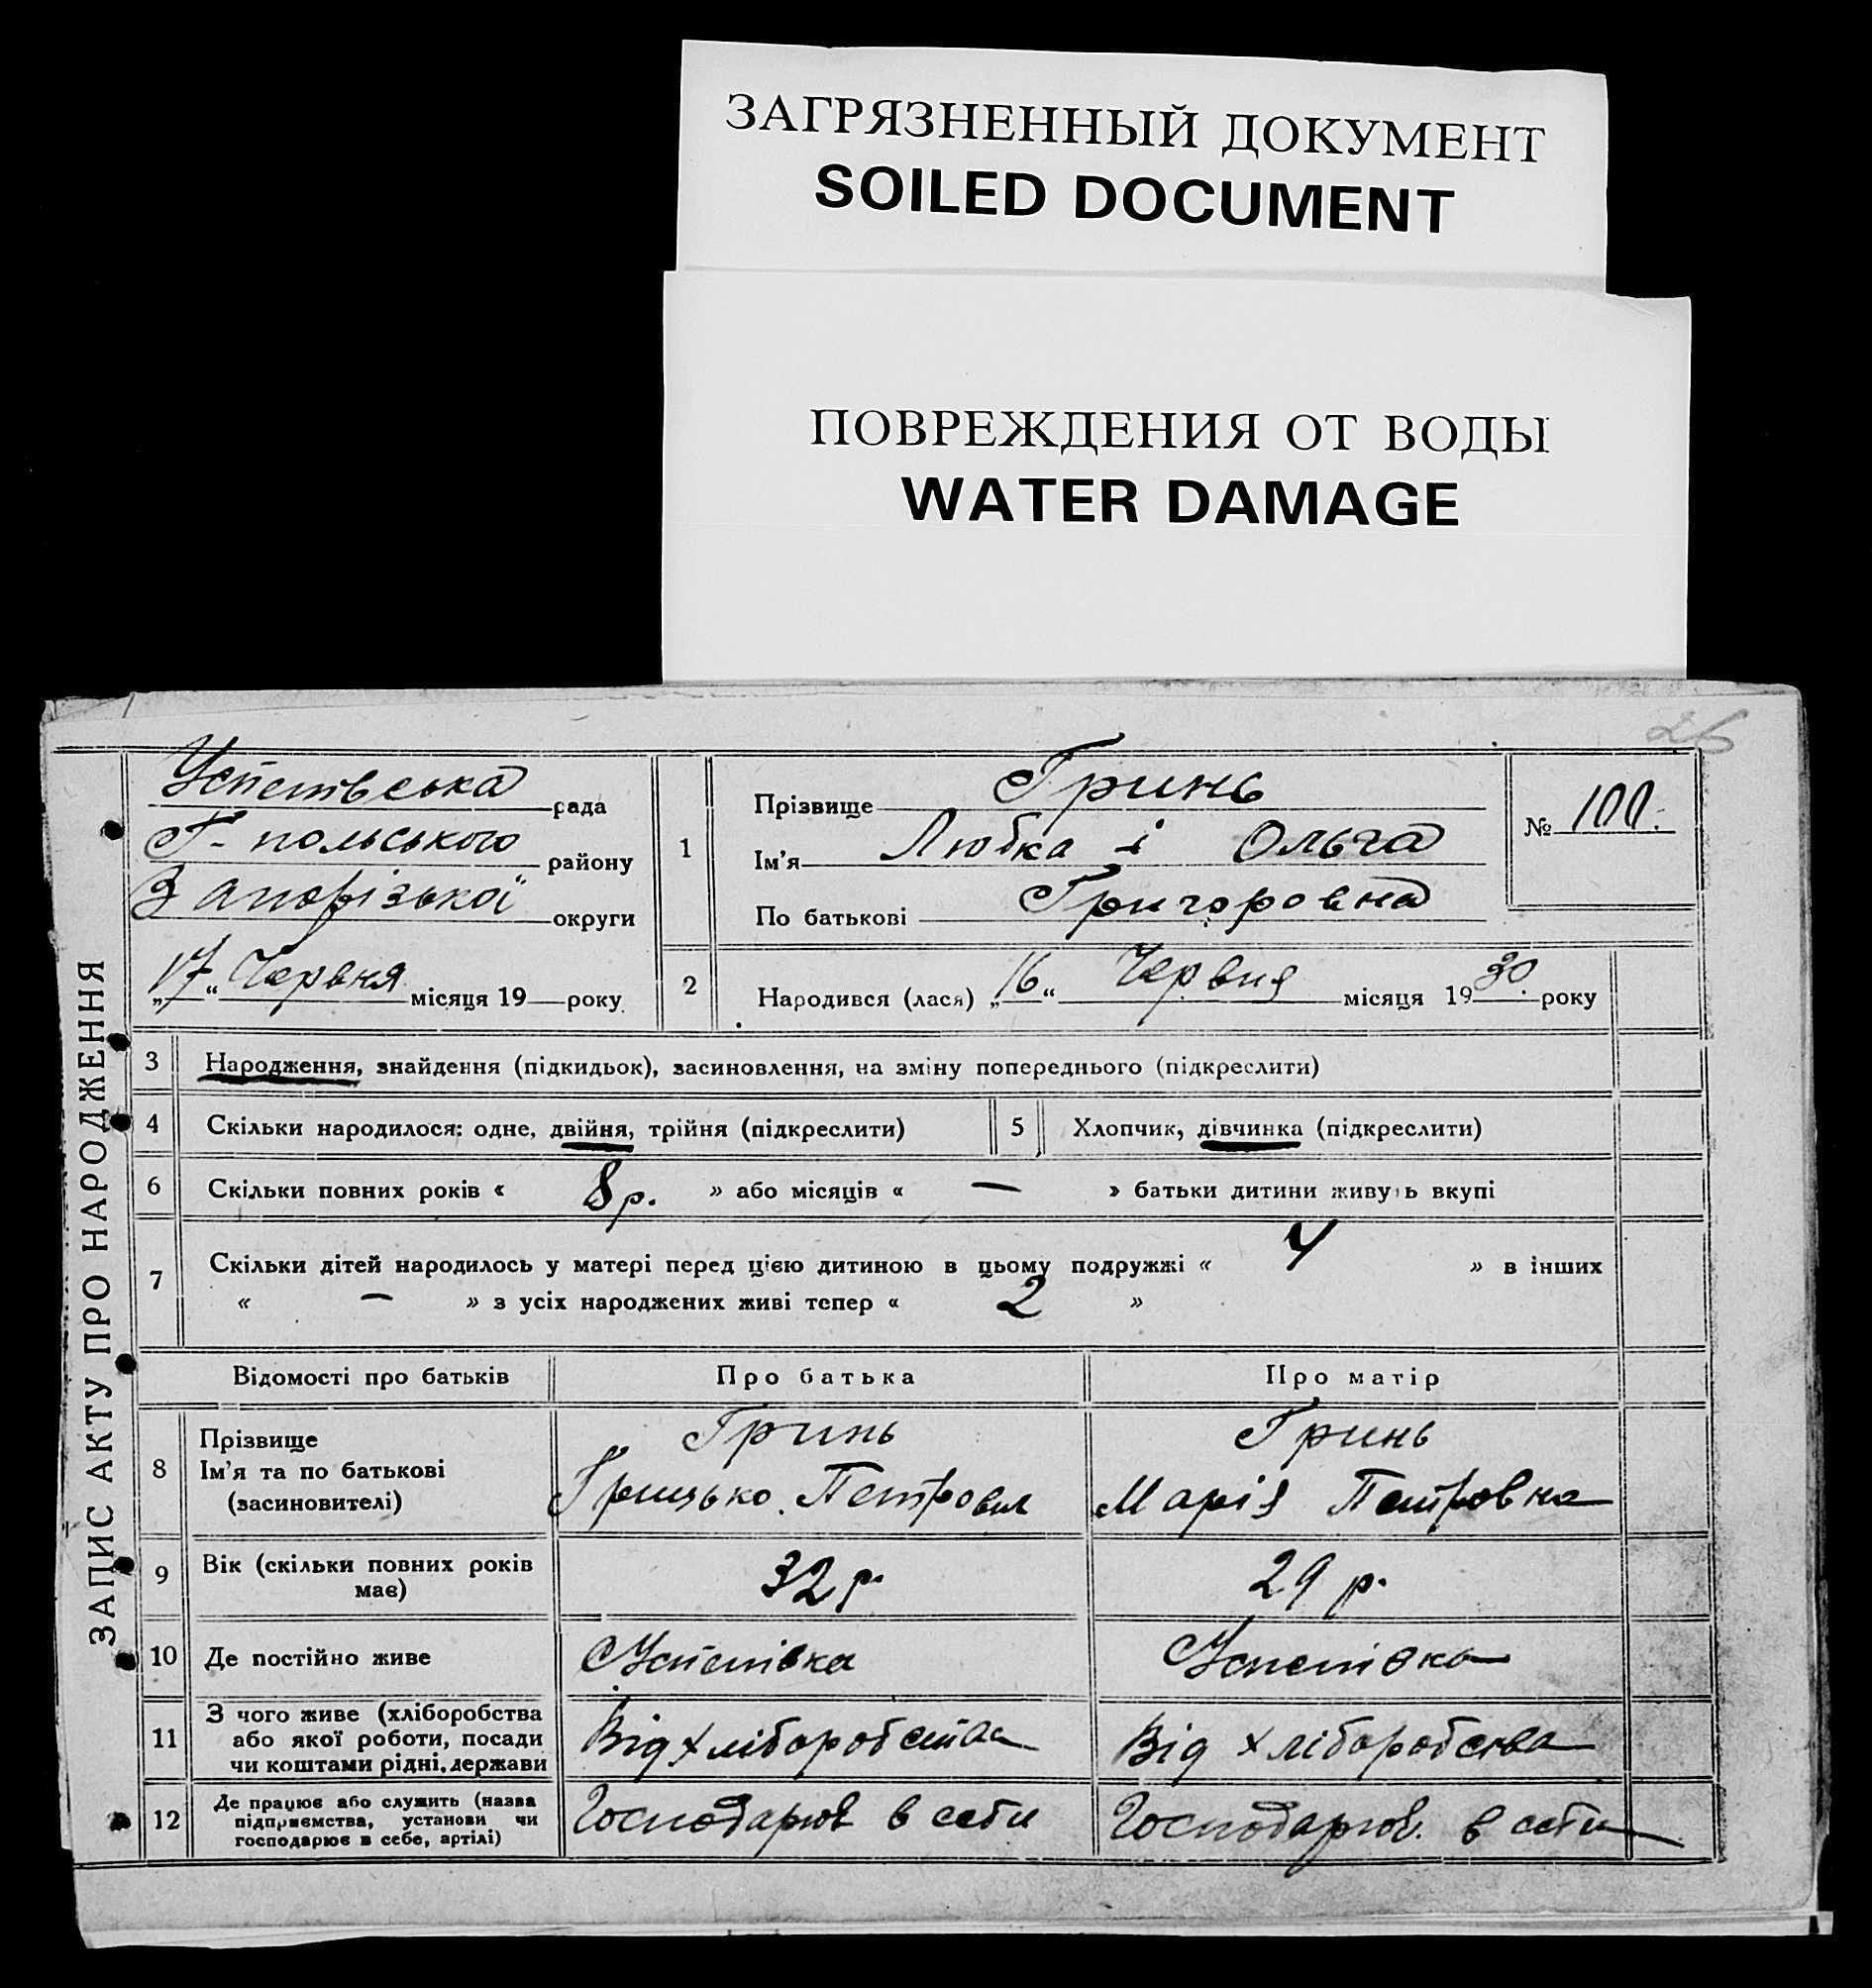 ЗАГРЯЗНЕННЫЙ ДОКУМЕНТ
SOILED DOCUMENT
ПОВРЕЖДЕНИЯ ОТ ВОДЫ
WATER DAMAGE
26
ЗАПИС АКТУ ПРО НАРОДЖЕННЯ
Успенівська рада
Г-польського району
Запорізької округи
„17“ Червня місяця 19 року
1
Прізвище Гринь
Ім'я Любка і Ольга
По батькові Григоровна
№ 100.
2 Народився (лася) „16“ Червня місяця 1930 року
3 Народження, знайдення (підкидьок), засиновлення, на зміну попереднього (підкреслити)
4 Скільки народилося: одне, двійня, трійня (підкреслити) 5 Хлопчик, дівчинка (підкреслити)
6 Скільки повних років « 8 р. » або місяців « — » батьки дитини живуть вкупі
7 Скільки дітей народилось у матері перед цією дитиною в цьому подружжі « 4 » в інших
« — » з усіх народжених живі тепер « 2 »
Відомості про батьків Про батька Про матір
8 Прізвище Гринь Гринь
Ім'я та по батькові Грицько Петрович Марія Петровна
(засиновителі)
9 Вік (скільки повних років має) 32 р. 29 р.
10 Де постійно живе Успенівка Успенівка
11 З чого живе (хліборобства
або якої роботи, посади
чи коштами рідні, держави
Від хліборобства Від хліборобства
12 Де працює або служить (назва
підприємства, установи чи
господарює в себе, артілі)
Господарює в себи Господарює в себи